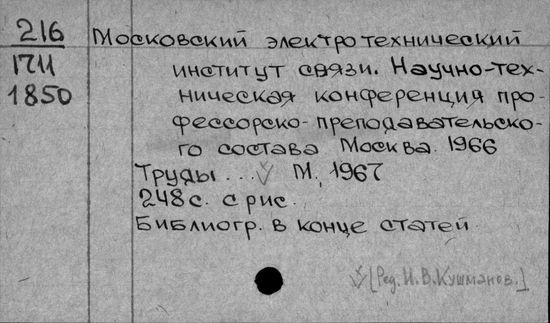 216 Московский электротехнический
1711 институт связи. Научно-тех-
1850 ническая конференция про-
фессорско-преподавательско-
го состава Москва. 1966
Труды ... М, 1967
248 с. с рис.
Библиогр. в конце статей
[Ред. И. В. Кушманов.]